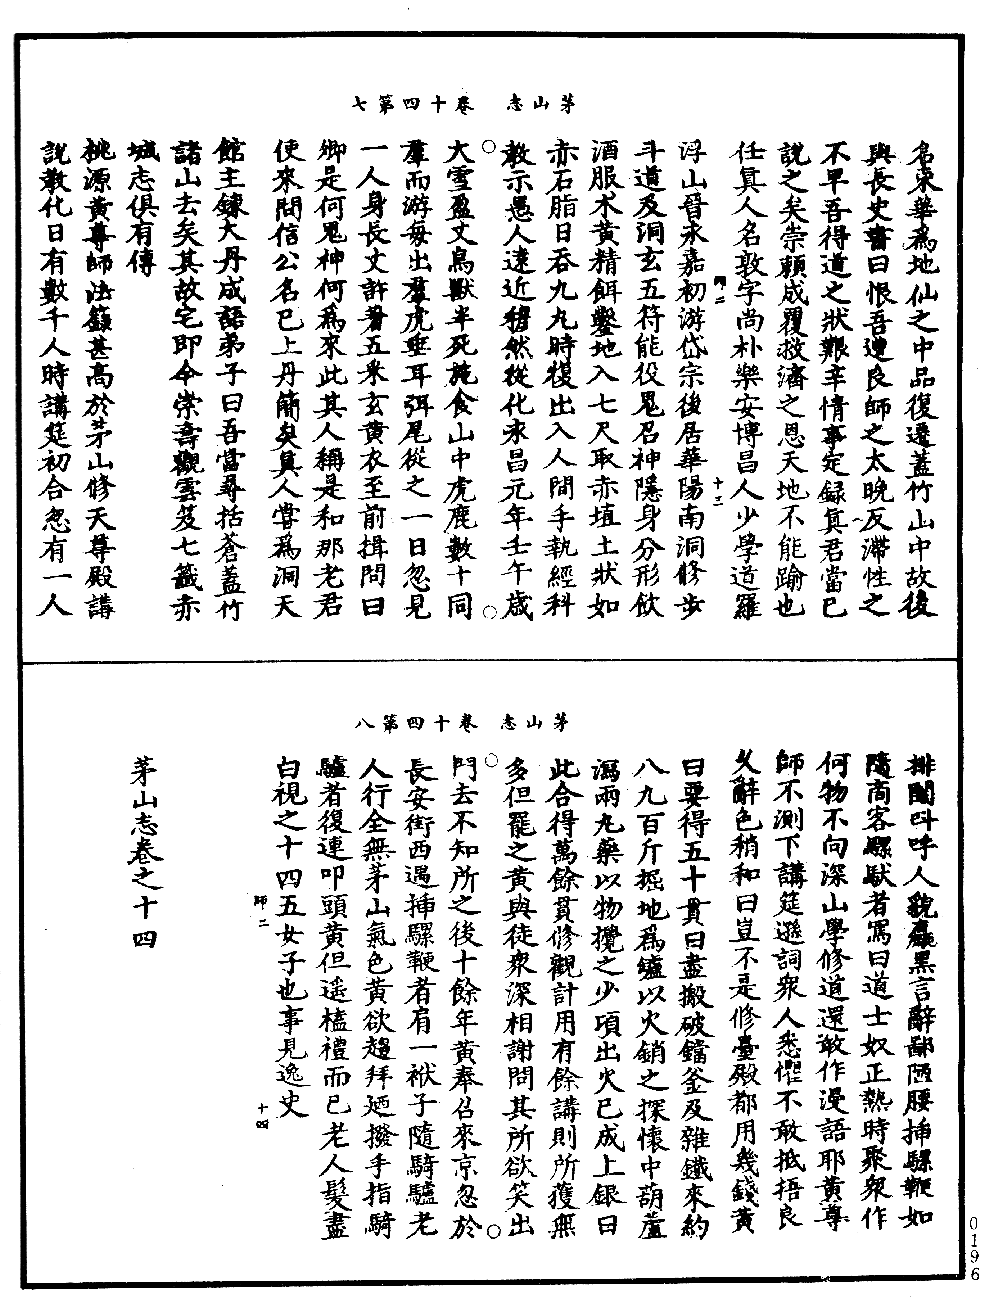 茅山志　卷十四第七
名東華爲地仙之中品復遷蓋竹山中故後
與長史書曰恨吾遭良師之太晚反滯性之
不早吾得道之狀艱辛情事定錄真君當已
說之矣崇賴成覆救濟之恩天地不能踰也
任真人名敦字尚朴樂安博昌人少學道羅
師二　十三
浮山晉永嘉初游岱宗後居華陽南洞修步
斗道及洞玄五符能役鬼召神隱身分形飲
酒服朮黃精餌鑿地入七尺取赤埴土狀如
赤石脂日吞九九時復出入人間手執經科
教示愚人遠近穆然從化永昌元年壬午歲
大雪盈丈鳥獸半死施食山中虎鹿數十同
羣而游每出羣虎垂耳弭尾從之一日忽見
一人身長丈許著五米玄黃衣至前揖問曰
卿是何鬼神何爲來此其人稱是和那老君
使來問信公名已上丹簡矣真人嘗爲洞天
館主鍊大丹成語弟子曰吾當尋括蒼蓋竹
諸山去矣其故宅即今崇壽觀雲笈七籤赤
城志俱有傳
桃源黃尊師法籙甚高於茅山修天尊殿講
說教化日有數千人時講筵初合忽有一人
茅山志　卷十四第八
排闥叫呼人貌麤黑言辭鄙陋腰揷騾鞭如
隨商客騾馱者罵曰道士奴正熱時聚衆作
何物不向深山學修道還敢作漫語耶黃尊
師不測下講筵遜詞衆人悉懼不敢抵捂良
久辭色稍和曰豈不是修臺殿都用幾錢黃
曰要得五十貫曰盡搬破鐺釜及雜鐵來約
八九百斤掘地爲鑪以火銷之探懷中葫蘆
瀉兩丸藥以物攪之少頃出火已成上銀曰
此合得萬餘貫修觀計用有餘講則所獲無
多但罷之黃與徒衆深相謝問其所欲笑出
門去不知所之後十餘年黃奉召來京忽於
長安街西遇揷騾鞭者肩一袱子隨騎驢老
人行全無茅山氣色黃欲趨拜廼撥手指騎
驢者復連叩頭黃但遥榼禮而已老人髮盡
白視之十四五女子也事見逸史
師二　十四
茅山志卷之十四
0196